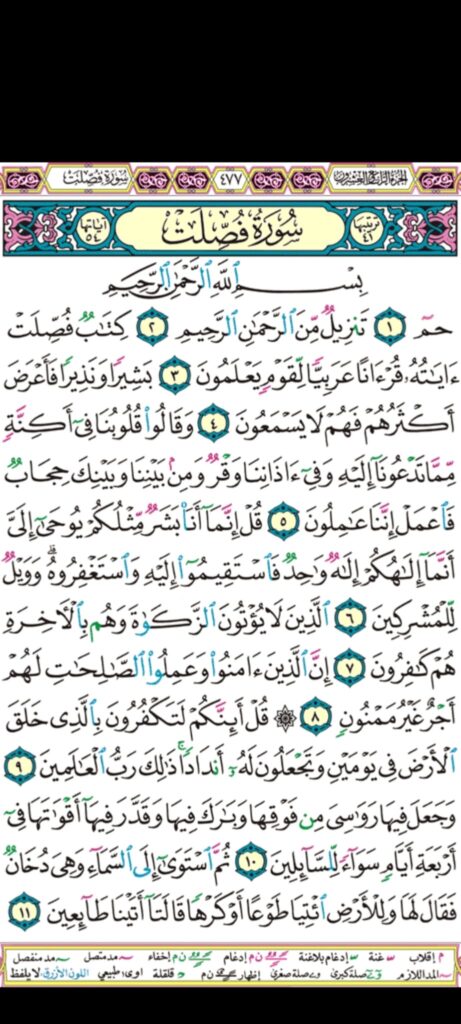 سُورَةُ فُصِّلَتْ
٤٧٧
الجزء الرابع والعشرون
ترتيبها ٤١
سُورَةُ فُصِّلَتْ
آياتها ٥٤
بِسْمِ ٱللَّهِ ٱلرَّحْمَٰنِ ٱلرَّحِيمِ
حمٓ ١ تَنزِيلٌ مِّنَ ٱلرَّحْمَٰنِ ٱلرَّحِيمِ ٢ كِتَٰبٌ فُصِّلَتْ
ءَايَٰتُهُۥ قُرْءَانًا عَرَبِيًّا لِّقَوْمٍ يَعْلَمُونَ ٣ بَشِيرًا وَنَذِيرًا فَأَعْرَضَ
أَكْثَرُهُمْ فَهُمْ لَا يَسْمَعُونَ ٤ وَقَالُوا۟ قُلُوبُنَا فِىٓ أَكِنَّةٍ
مِّمَّا تَدْعُونَآ إِلَيْهِ وَفِىٓ ءَاذَانِنَا وَقْرٌ وَمِنۢ بَيْنِنَا وَبَيْنِكَ حِجَابٌ
فَٱعْمَلْ إِنَّنَا عَٰمِلُونَ ٥ قُلْ إِنَّمَآ أَنَا۠ بَشَرٌ مِّثْلُكُمْ يُوحَىٰٓ إِلَىَّ
أَنَّمَآ إِلَٰهُكُمْ إِلَٰهٌ وَٰحِدٌ فَٱسْتَقِيمُوٓا۟ إِلَيْهِ وَٱسْتَغْفِرُوهُ ۗ وَوَيْلٌ
لِّلْمُشْرِكِينَ ٦ ٱلَّذِينَ لَا يُؤْتُونَ ٱلزَّكَوٰةَ وَهُم بِٱلْءَاخِرَةِ
هُمْ كَٰفِرُونَ ٧ إِنَّ ٱلَّذِينَ ءَامَنُوا۟ وَعَمِلُوا۟ ٱلصَّٰلِحَٰتِ لَهُمْ
أَجْرٌ غَيْرُ مَمْنُونٍ ٨ ۞ قُلْ أَئِنَّكُمْ لَتَكْفُرُونَ بِٱلَّذِى خَلَقَ
ٱلْأَرْضَ فِى يَوْمَيْنِ وَتَجْعَلُونَ لَهُۥٓ أَندَادًا ۚ ذَٰلِكَ رَبُّ ٱلْعَٰلَمِينَ ٩
وَجَعَلَ فِيهَا رَوَٰسِىَ مِن فَوْقِهَا وَبَٰرَكَ فِيهَا وَقَدَّرَ فِيهَآ أَقْوَٰتَهَا فِىٓ
أَرْبَعَةِ أَيَّامٍ سَوَآءً لِّلسَّآئِلِينَ ١٠ ثُمَّ ٱسْتَوَىٰٓ إِلَى ٱلسَّمَآءِ وَهِىَ دُخَانٌ
فَقَالَ لَهَا وَلِلْأَرْضِ ٱئْتِيَا طَوْعًا أَوْ كَرْهًا قَالَتَآ أَتَيْنَا طَآئِعِينَ ١١
م إقلاب غنة إدغام بلاغنة ن م إدغام ن م إخفاء مد متصل مد منفصل
المد اللازم صلة كبرى صلة صغرى إظهار ن م قلقلة اوى: طبيعي اللون الأزرق: لا يلفظ